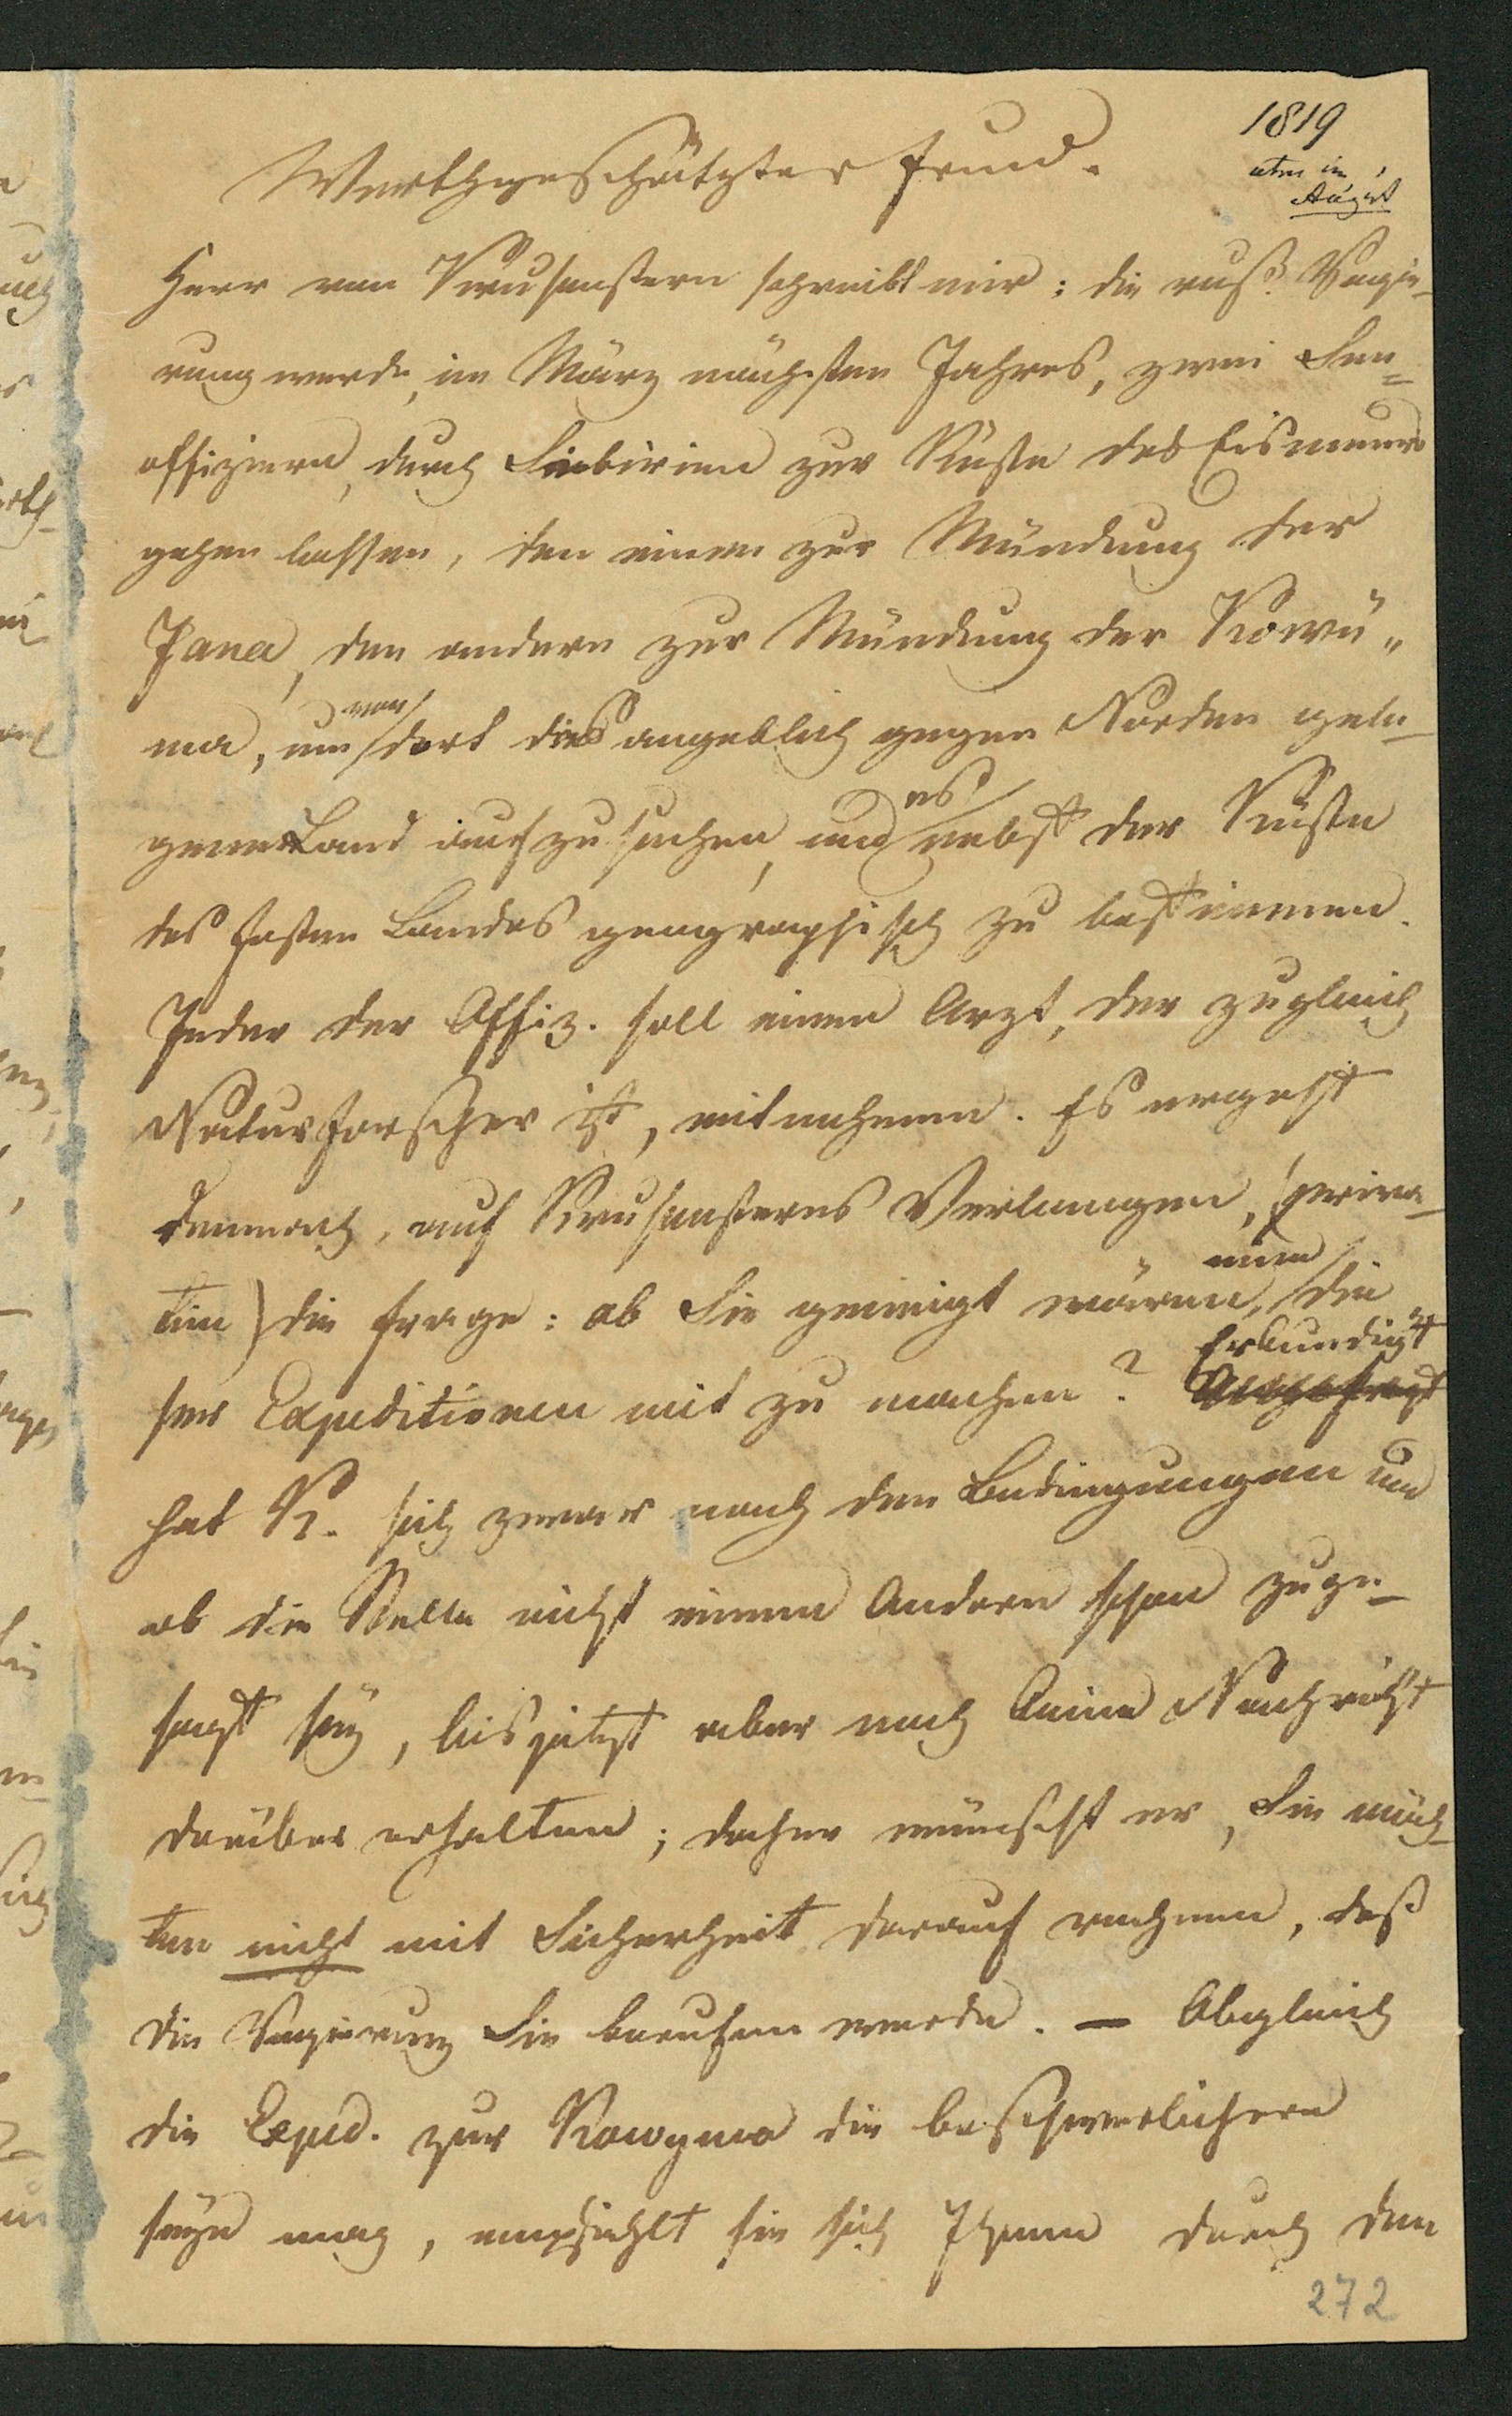 1819
im
August
Werthgeschätzter Freund.
Herr von Krusenstern schreibt mir: die russ. Regie-
rung werde, im März nächsten Jahres, zwei See=
offiziere, durch Siebirien zur Küste des Eismeeres
gehen lassen, den einen zur Mündung der
Jana, den andern zur Mündung der Kowü-
ma, um von dort das angeblich gegen Norden gele-
gene Land aufzusuchen, und es nebst der Küste
des festen Landes geographisch zu bestimmen.
Jeder der Offiz. soll einen Arzt, der zugleich
Naturforscher ist, mitnehmen. Es ergeht
demnach, auf Krusensterns Verlangen, (priva-
tim) die Frage: ob Sie geneigt wären, eine die-
ser Expeditionen mit zu machen? Erkundigt
hat K. sich zwar nach den Bedingungen und
ob die Stelle nicht einem Andern schon zuge-
sagt sey, bis jetzt aber noch keine Nachricht
darüber erhalten; daher wünscht er, Sie möch-
ten nicht mit Sicherheit darauf rechnen, daß
die Regierung Sie berufen werde. — Obgleich
die Exped. zur Kowyma die beschwerlichere
seyn mag, empfiehlt sie sich Ihnen durch den
272